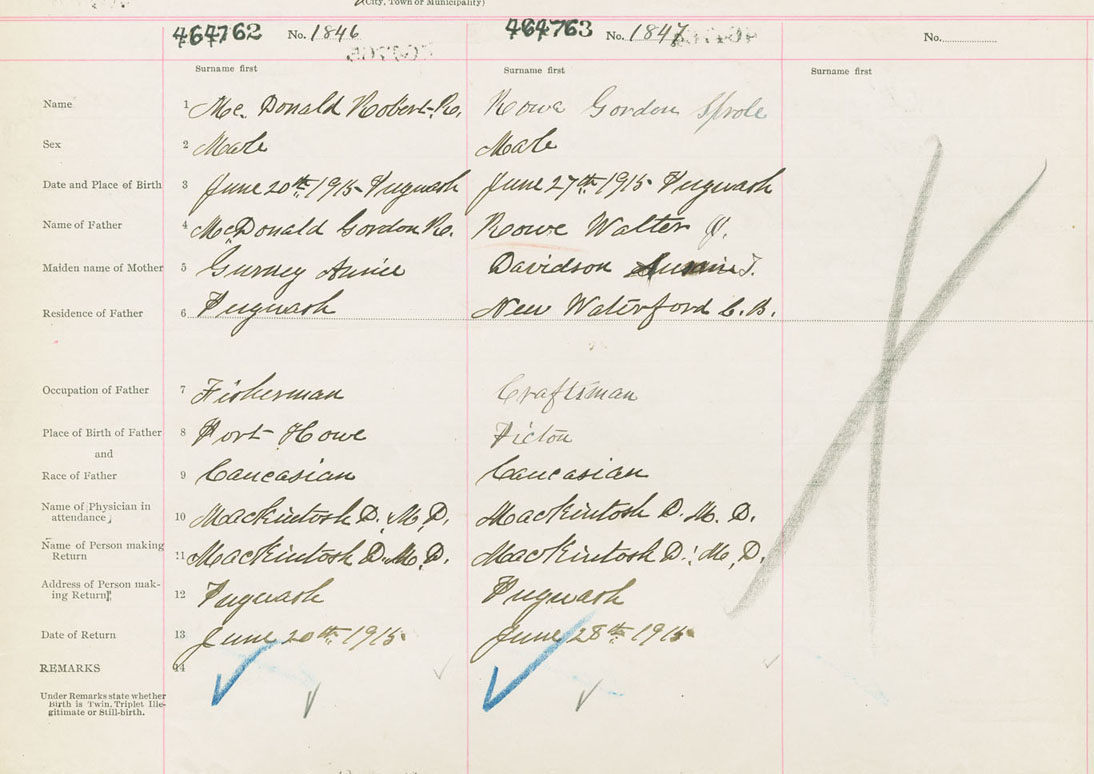 (City, Town or Municipality)
464762 No. 1846 464763 No. 1847 No.
Surname first Surname first Surname first
Name 1 Mc. Donald Robert R. Rowe Gordon Sprole
Sex 2 Male Male
Date and Place of Birth 3 June 20th 1915 Pugwash June 27th 1915 Pugwash
Name of Father 4 McDonald Gordon R. Rowe Walter
Maiden name of Mother 5 Gurney Annie Davidson
Residence of Father 6 Pugwash New Waterford C. B.
Occupation of Father 7 Fisherman Craftsman
Place of Birth of Father 8 Port Howe Picton
and
Race of Father 9 Caucasian Caucasian
Name of Physician in
attendance 10 MacKintosh D. M. D. MacKintosh D. M. D.
Name of Person making
Return 11 MacKintosh D. M. D. MacKintosh D. M. D.
Address of Person mak-
ing Return 12 Pugwash Pugwash
Date of Return 13 June 20th 1915 June 28th 1915
REMARKS 14
Under Remarks state whether
Birth is Twin. Triplet Ille-
gitimate or Still-birth.